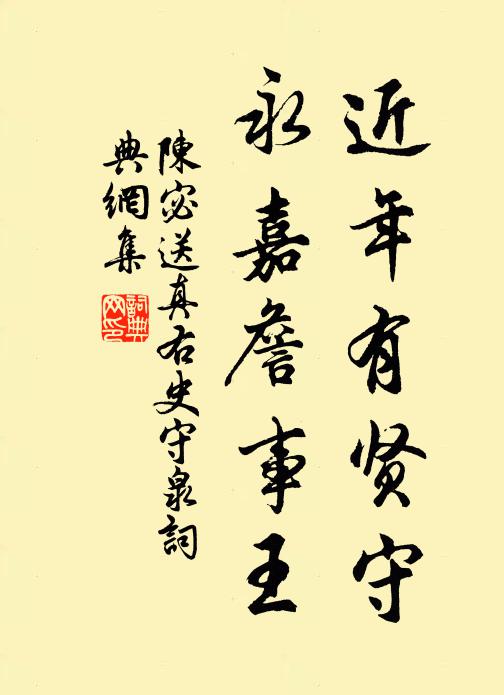 近年有贤守
永嘉詹事王
陳宓送真右史守泉詞
典網集
詞典
网印